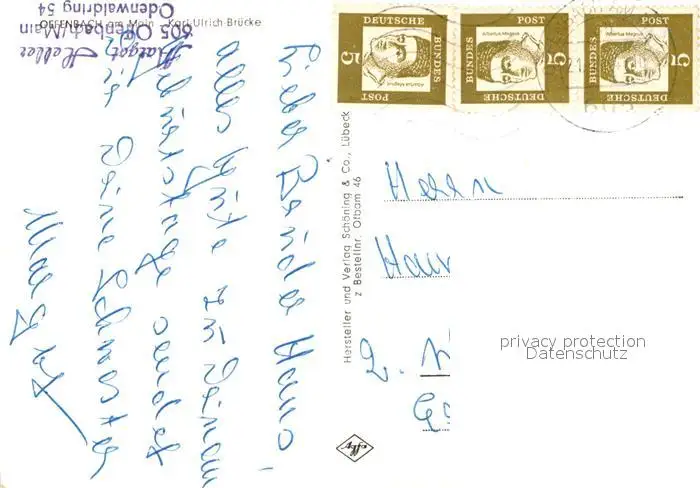 OFFENBACH am Main - Karl-Ulrich-Brücke
Margot Heller
605 Offenbach/Main
Odenwaldring 54
Lieber Bruder Hans!
alles Gute zu Deinem
Geburtstage sendet
Dir Deine Schwester
Margot
Hersteller und Verlag Schöning & Co., Lübeck
z Bestellnr. Ofbam 46
DEUTSCHE BUNDES POST
5
Albertus Magnus
DEUTSCHE BUNDES POST
5
Albertus Magnus
DEUTSCHE BUNDES POST
5
Albertus Magnus
Herrn
privacy protection
Datenschutz
Agfa